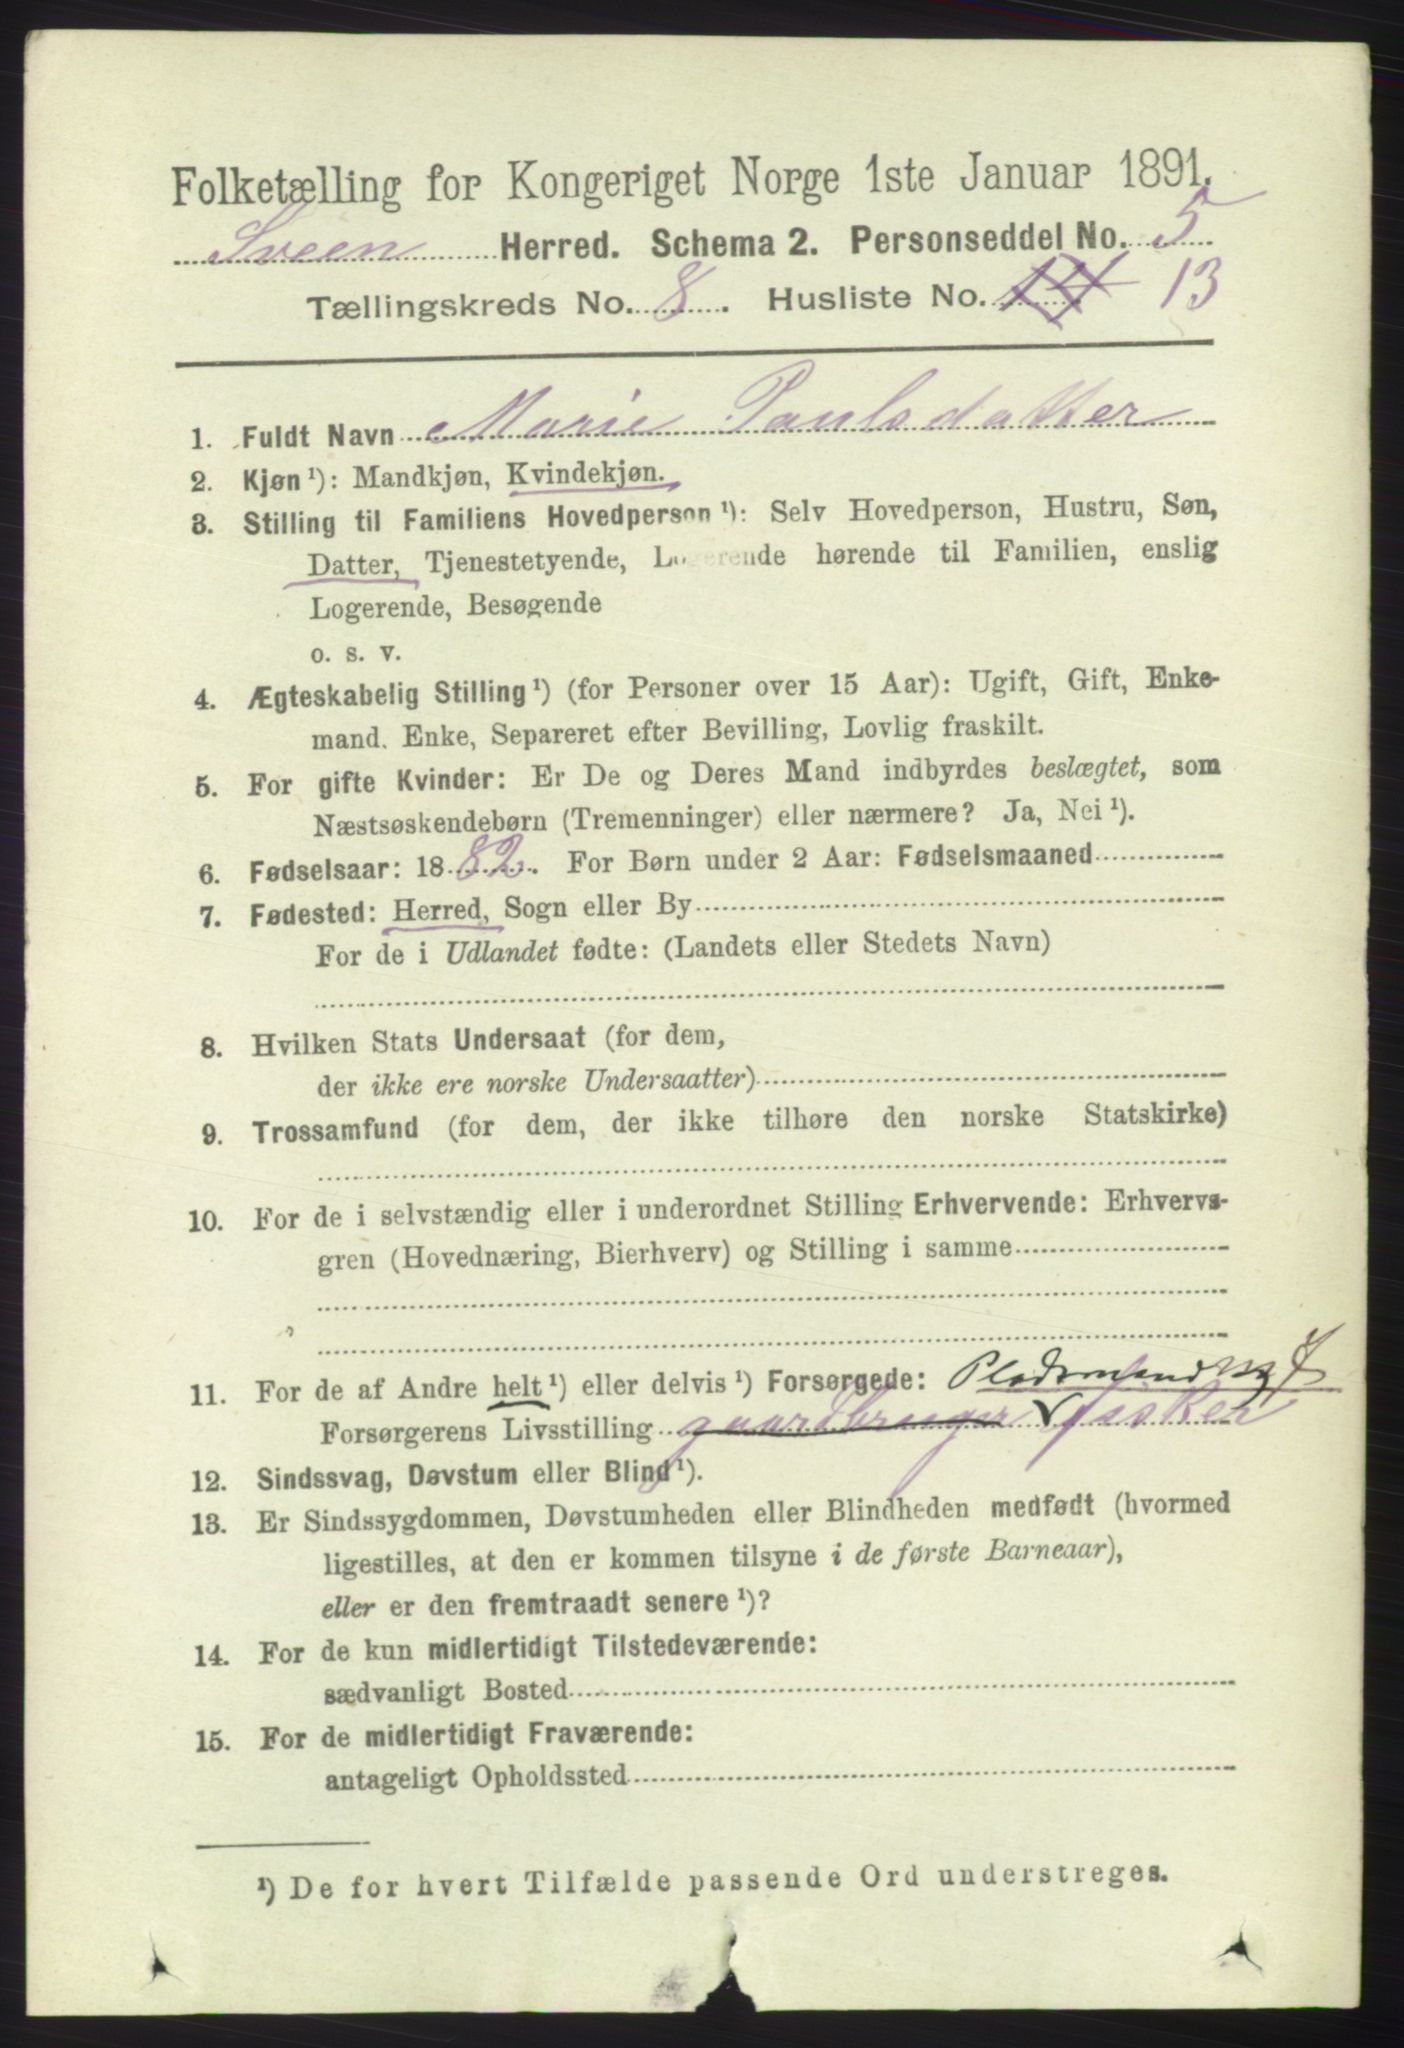 Folketælling for Kongeriget Norge 1ste Januar 1891.
Sveen Herred. Schema 2. Personseddel No. 5
Tællingskreds No. 8. Husliste No. 14 13
1. Fuldt Navn Marie Paulsdatter
2. Kjøn ¹): Mandkjøn, Kvindekjøn.
3. Stilling til Familiens Hovedperson ¹): Selv Hovedperson, Hustru, Søn,
Datter, Tjenestetyende, Logerende hørende til Familien, enslig
Logerende, Besøgende
o. s. v.
4. Ægteskabelig Stilling ¹) (for Personer over 15 Aar): Ugift, Gift, Enke-
mand. Enke, Separeret efter Bevilling, Lovlig fraskilt.
5. For gifte Kvinder: Er De og Deres Mand indbyrdes beslægtet, som
Næstsøskendebørn (Tremenninger) eller nærmere? Ja, Nei ¹).
6. Fødselsaar: 1882. For Børn under 2 Aar: Fødselsmaaned
7. Fødested: Herred, Sogn eller By
For de i Udlandet fødte: (Landets eller Stedets Navn)
8. Hvilken Stats Undersaat (for dem,
der ikke ere norske Undersaatter)
9. Trossamfund (for dem, der ikke tilhøre den norske Statskirke)
10. For de i selvstændig eller i underordnet Stilling Erhvervende: Erhvervs-
gren (Hovednæring, Bierhverv) og Stilling i samme
11. For de af Andre helt ¹) eller delvis ¹) Forsørgede:
Forsørgerens Livsstilling gaardbruger fisker
12. Sindssvag, Døvstum eller Blind ¹).
13. Er Sindssygdommen, Døvstumheden eller Blindheden medfødt (hvormed
ligestilles, at den er kommen tilsyne i de første Barneaar),
eller er den fremtraadt senere ¹)?
14. For de kun midlertidigt Tilstedeværende:
sædvanligt Bosted
15. For de midlertidigt Fraværende:
antageligt Opholdssted
¹) De for hvert Tilfælde passende Ord understreges.